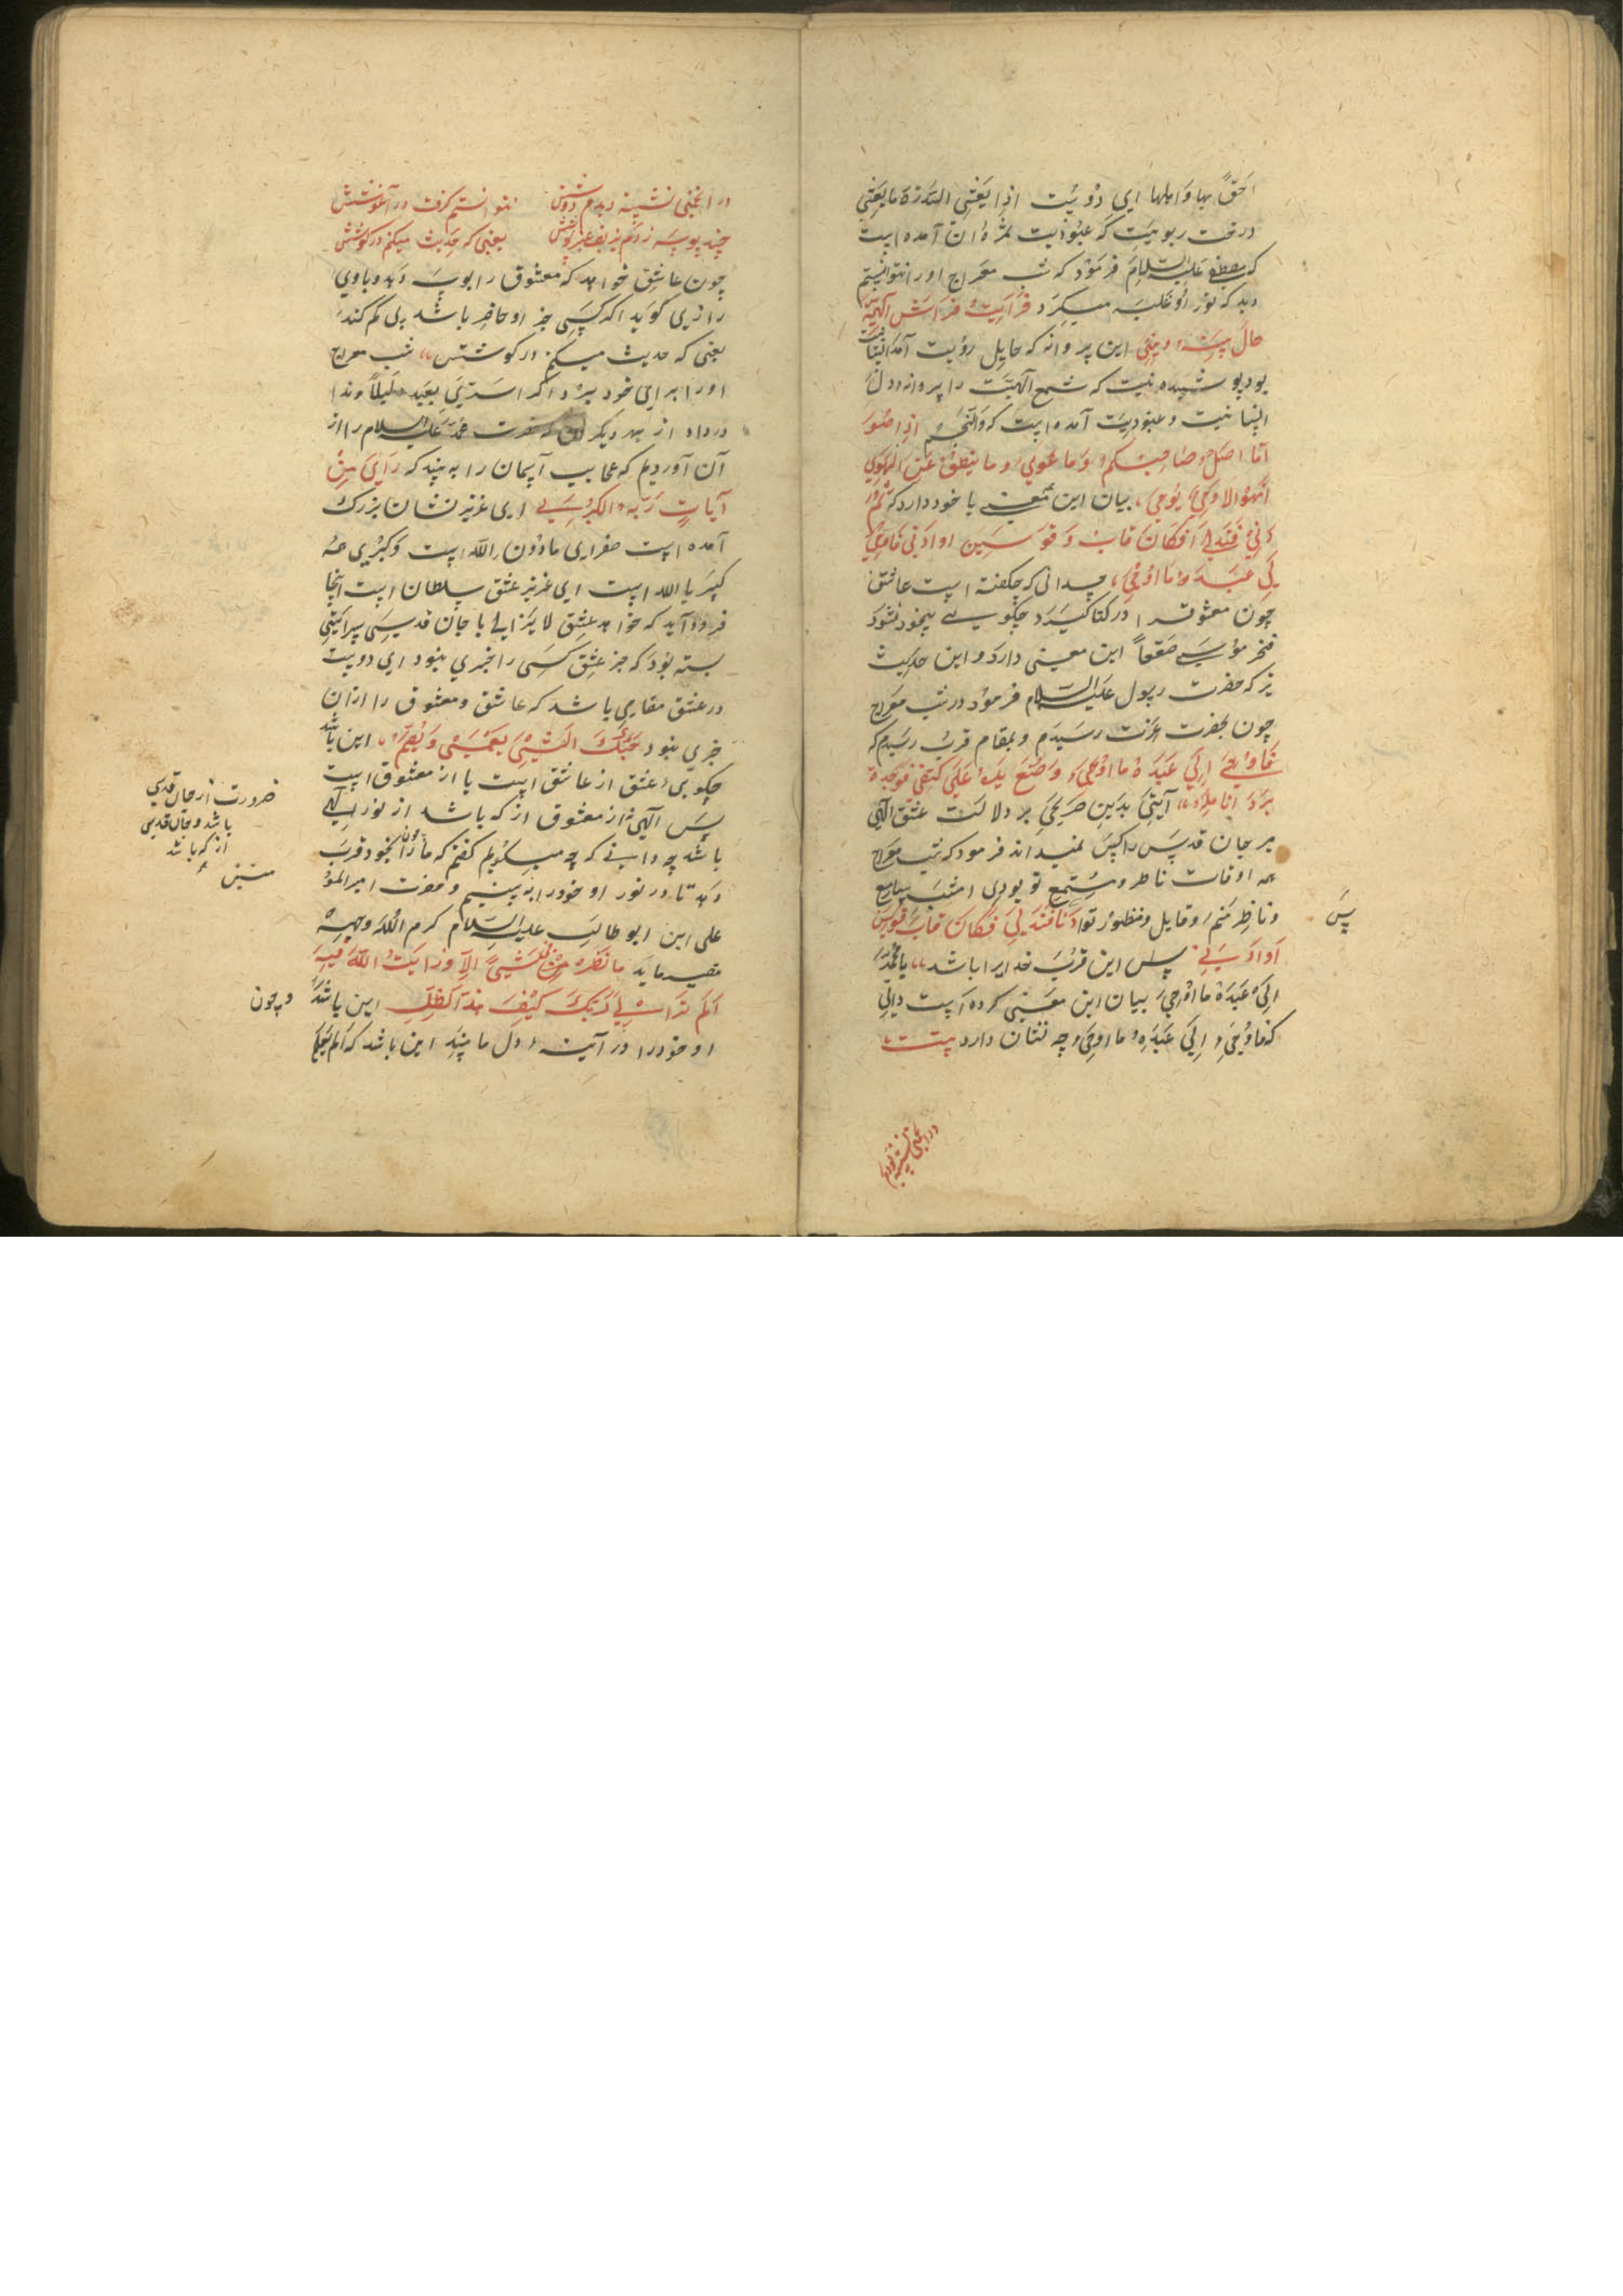 احق بها و اهلها ای دوست اذ یغشی السدرة ما یغشی
درخت ربوبیت که عبودیت ثمرۀ ان آمده است
که مصطفی علیه السلام فرمود که شب معراج او را نتوانستم
دید که نور او غلبه میکرد فرایت فراش
حال بینه و بینی این پروانه که حایل رؤیت آمد
بود پوشیده نیست که شمع الهیت را پروانه دل
انسانیت و عبودیت آمده است که والنجم اذا هوی
ما ضل صاحبکم وما غوی وما ینطق عن الهوی
ان هو الا وحی یوحی، بیان این معنی با خود دارد که ثم
دنی فتدلی فکان قاب قوسین او ادنی فاوحی
الی عبده ما اوحی، چه دانی که چگفته است عاشق
چون معشوق را در کنار گیرد چگویی بیخود نشود
فخر موسی صعقا این معنی دارد و این حدیث
نیز که حضرت رسول علیه السلام فرمود در شب معراج
چون بحضرت عزت رسیدم و بمقام قرب رسیدم که
فاوحی الی عبده ما اوحی وضع یده علی کتفی فوجدت
برد انامله، آیتی بدین صریحی بر دلالت عشق الهی
بر جان قدسی را کس نمیداند فرمود که شب معراج
همه اوقات ناظر و مستمع تو بودی امشب سامع
و ناظر منم و قایل و منظور تو دنا فتدلی فکان قاب قوسین
او ادنی پس این قرب خدایرا باشد، یا محمد
الی عبده ما اوحی بیان این معنی کرده است دانی
که فاوحی الی عبده ما اوحی چه نشان دارد بیت
پس
در انجمنی نشسته دیدم
در انجمنی نشسته دیدم دوشش نتوانستم گرفت در آغوشش
چند بوسه زدم بر زلف عنبر پوشش یعنی که حدیث میکنم در گوشش
چون عاشق خواهد که معشوق را بوسه دهد و با وی
رازی گوید اگر کسی جز او حاضر باشد
یعنی که حدیث میکنم در گوشش، شب معراج
او را برای خود برد اگر اسری بعبده لیلا و ندا
درداد از بهر دیگر که حضرت محمد علیه السلام را از
آن آوردیم که عجایب آسمان را به بیند که رای من
آیات ربه الکبری ای عزیز نشان بزرگ
آمده است صغرای مادون الله است و کبری
کبریا الله است ای عزیز عشق سلطان است آنجا
فرود آید که خواهد عشق لا یزالی با جان قدسی
بسته بود که جز عشق کسی را خبری نبود ای دوست
در عشق مقامی باشد که عاشق و معشوق را ازان
خبری نبود حبک الشیئ یعمی و یصم، این باشد
چگویی عشق از عاشق است یا از معشوق است
پس از معشوق از که باشد از نور الهی
باشد چه دانی که چه میگویم گفتم که ما را بخود قرب
دهد تا در نور او خود را به بینیم و حضرت امیر المؤ
علی ابن ابو طالب علیه السلام کرم الله وجهه
میفرماید ما نظرت شیئ الا و رایت الله فیه
الم تر الی ربک کیف مد الظل این باشد
او خود را در آینۀ دل ما بیند این باشد که الم یعلم
ضرورت از جان قدسی
باشد و جان قدسی
از که باشد
و چون